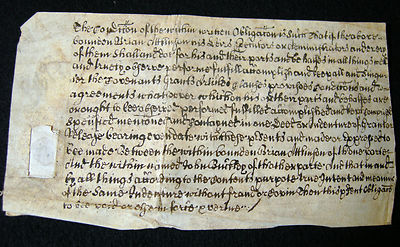 The Condition of the within written Obligation is Such that if the above
bounden Brian Attkinson his heires Executors or Administrators and every
of them shall and doe for his and their parts and behalfes in all things well
and truely observe performe fulfill accomplish and keepe all and singuler
the Covenants Grants Articles Clauses provisoes Conditions and
agreements whatsoever which on his or their parts and behalfes are
or ought to bee observed performed fulfilled accomplished and kept
specified mentioned and contained in one Deed or Indenture of
Release bearing even date with these presents and made or expressed to
bee made Betweene the within bounden Brian Attkinson of the one partie
And the within named John of the other partie And that in and
by all things according to the Contents purpote true Intent and meaninge
of the Same Indenture without fraud or Covin Then this present Obligacon
to bee void or else in force